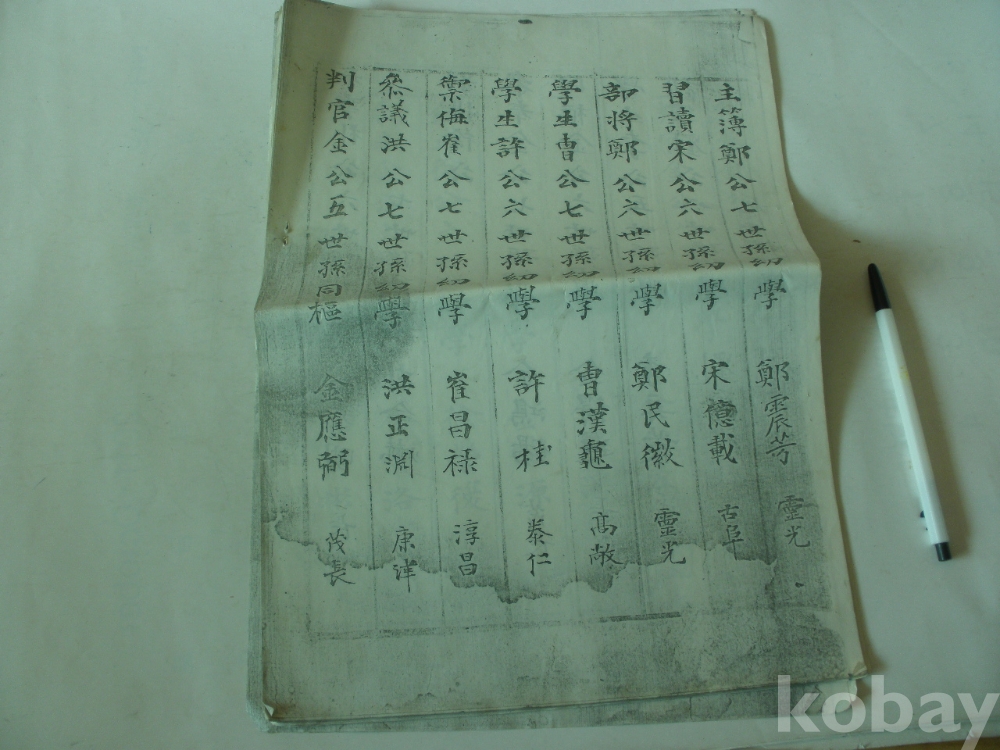 主簿鄭公七世孫幼學 鄭震芳 靈光
習讀宋公六世孫幼學 宋憶載 古阜
部將鄭公六世孫幼學 鄭民徽 靈光
學生曺公七世孫幼學 曺漢龜 高敞
學生許公六世孫幼學 許桂 泰仁
禦侮崔公七世孫幼學 崔昌禄 淳昌
叅議洪公七世孫幼學 洪正淵 康津
判官金公五世孫同樞 金應弼 茂長
kobay